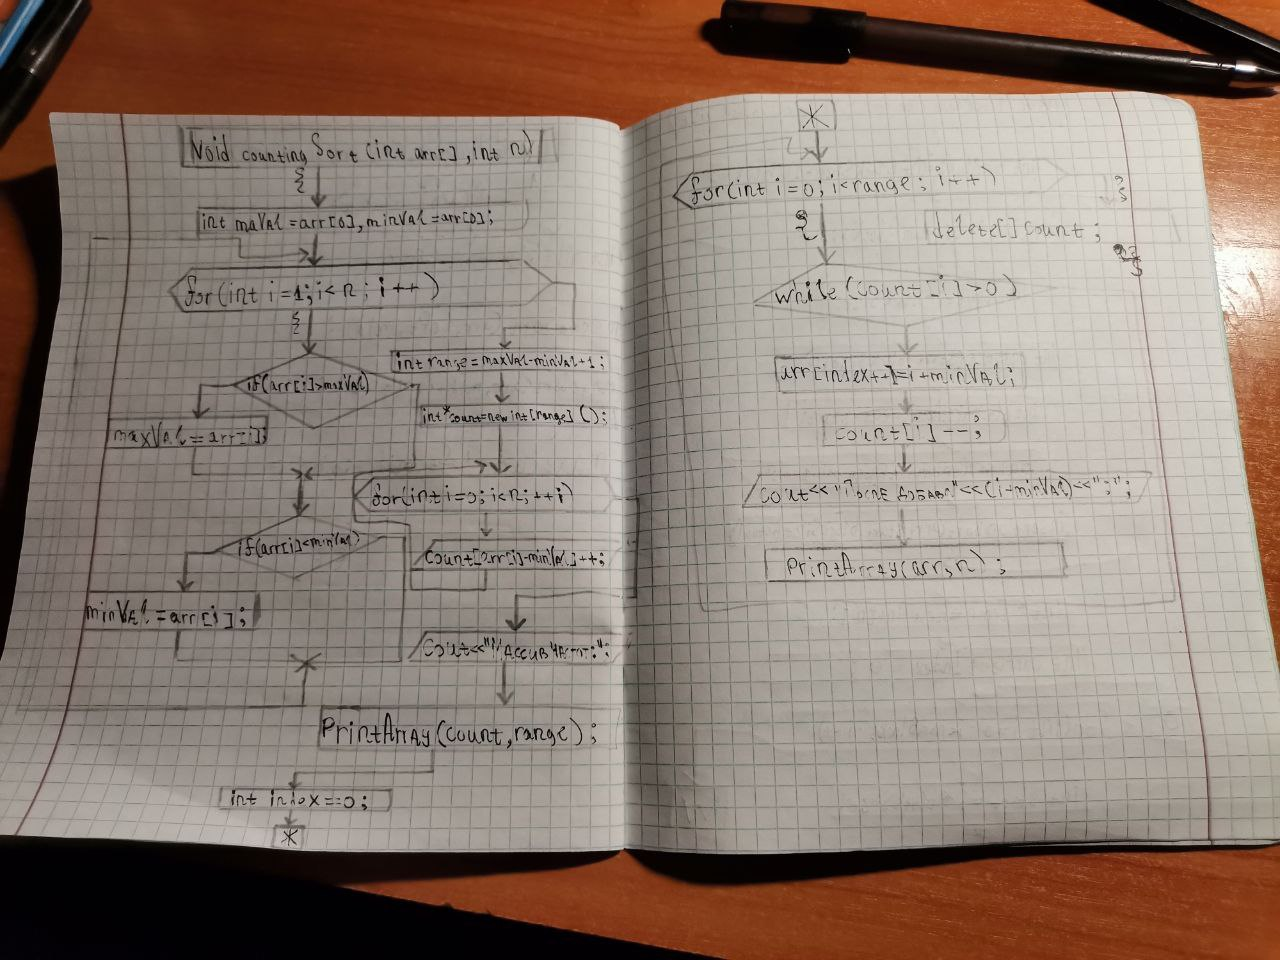 Void counting Sort (int arr[], int n)
{
int maVal = arr[0], minVal = arr[0];
for (int i = 1; i < n; i ++)
{
if (arr[i] > maxVal)
maxVal = arr[i];
if (arr[i] < minVal)
minVal = arr[i];
int range = maxVal - minVal + 1;
int* count = new int [range] ();
for (int i = 0; i < n; ++i)
count [arr[i] - minVal] ++;
Cout << "Массив
PrintArray (count, range);
int index = 0;
*
*
for (int i = 0; i < range; i ++)
{
while (count [i] > 0)
arr[index ++] = i + minVal;
count [i] --;
cout << "После добавл" << (i + minVal) << ":";
PrintArray (arr, n);
}
delete[] count;
}